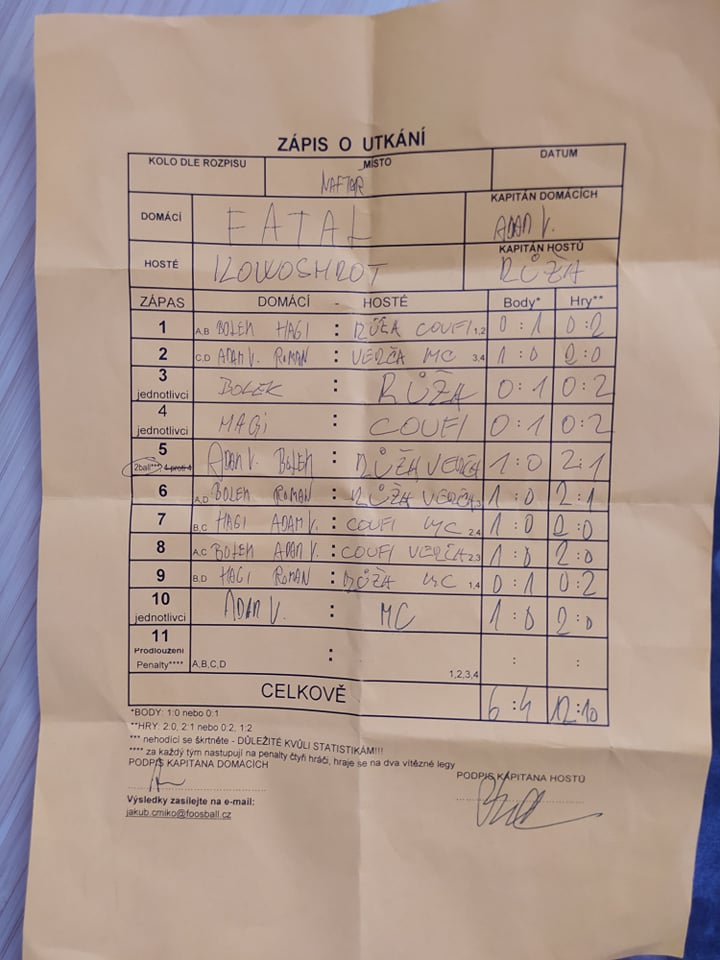 ZÁPIS O UTKÁNÍ
KOLO DLE ROZPISU MÍSTO DATUM
NAFTOR
DOMÁCÍ FATAL KAPITÁN DOMÁCÍCH ADAM V.
HOSTÉ KOWOSHROT KAPITÁN HOSTŮ RŮŽA
ZÁPAS DOMÁCÍ - HOSTÉ Body* Hry**
1 A,B BOLEK HAGI : RŮŽA COUFI 1,2 0:1 0:2
2 C,D ADAM V. ROMAN : VERČA MC 3,4 1:0 2:0
3 jednotlivci BOLEK : RŮŽA 0:1 0:2
4 jednotlivci HAGI : COUFI 0:1 0:2
5 2ball*** 4 proti 4 ADAM V. BOLEK : RŮŽA VERČA 1:0 2:1
6 A,D BOLEK ROMAN : RŮŽA VERČA 1:0 2:1
7 B,C HAGI ADAM V. : COUFI MC 2,4 1:0 2:0
8 A,C BOLEK ADAM V. : COUFI VERČA 2,3 1:0 2:0
9 B,D HAGI ROMAN : RŮŽA MC 1,4 0:1 0:2
10 jednotlivci ADAM V. : MC 1:0 2:0
11 Prodloužení Penalty**** A,B,C,D : 1,2,3,4 : :
CELKOVĚ 6:4 12:10
*BODY: 1:0 nebo 0:1
**HRY: 2:0, 2:1 nebo 0:2, 1:2
*** nehodící se škrtněte - DŮLEŽITÉ KVŮLI STATISTIKÁM!!!
**** za každý tým nastupují na penalty čtyři hráči, hraje se na dva vítězné legy
PODPIS KAPITANA DOMÁCÍCH PODPIS KAPITANA HOSTŮ
Výsledky zasílejte na e-mail:
jakub.cmiko@foosball.cz